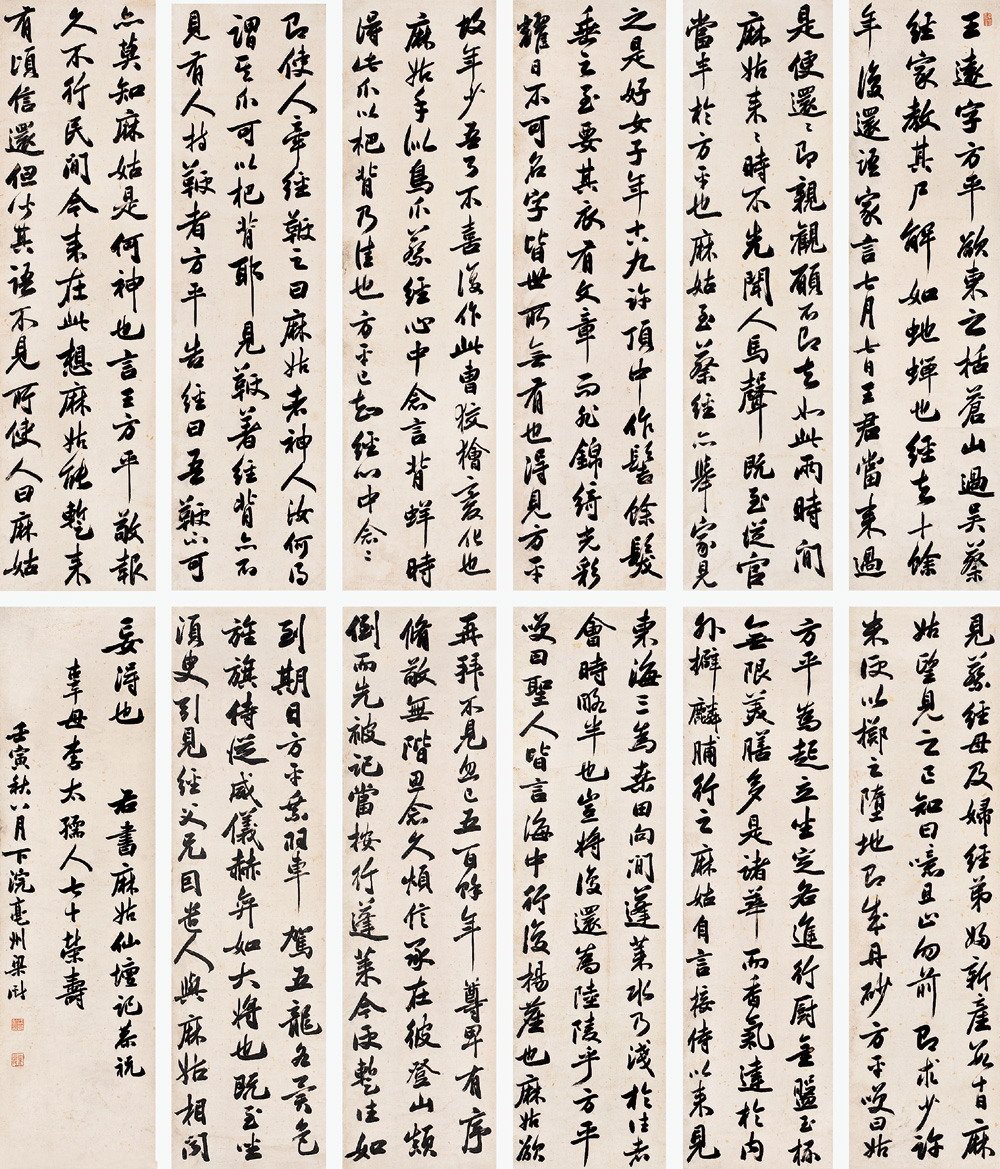 王遠字方平欲東之括蒼山過吳蔡
經家教其尸解如虵蟬也經去十餘
年復還語家言七月七日王君當來過
是便還〻即親觀願不即去如此兩時間
麻姑來〻時不先聞人馬聲既至從官
當半於方平也麻姑至蔡經亦舉家見
之是好女子年十八九許頂中作髻餘髮
垂之至要其衣有文章而非錦綺光彩
耀日不可名字皆世所無有也得見方平
故年少吾了不喜復作此曹狡獪變化也
麻姑手似鳥爪蔡經心中念言背蛘時
得此爪以杷背乃佳也方平已知經心中念〻
即使人牽經鞭之曰麻姑者神人汝何忽
謂其爪可以杷背耶見鞭著經背亦不
見有人持鞭者方平告經曰吾鞭不可
亦莫知麻姑是何神也言王方平敬報
久不行民間今來在此想麻姑能暫來
有頃信還但聞其語不見所使人曰麻姑
見蔡經母及婦經弟婦新產數十日麻
姑望見之已知曰噫且止勿前即求少許
米便以擲之墮地即成丹砂方平笑曰姑
方平為起立坐定各進行廚金盤玉杯
無限美膳多是諸華而香氣達於內
外擗麟脯行之麻姑自言接侍以來見
東海三為桑田向間蓬萊水乃淺於往者
會時略半也豈將復還為陸陵乎方平
笑曰聖人皆言海中行復揚塵也麻姑欲
再拜不見忽已五百餘年尊卑有序
脩敬無階思念久煩信承在彼登山顛
倒而先被記當按行蓬萊今便暫往如
到期日方平乘羽車駕五龍各異色
旌旗侍從威儀赫弈如大將也既至坐
須臾引見經父兄因遣人與麻姑相聞
妄得也 右書麻姑仙壇記恭祝
辜母李太孺人七十榮壽
壬寅秋八月下浣亳州梁巘